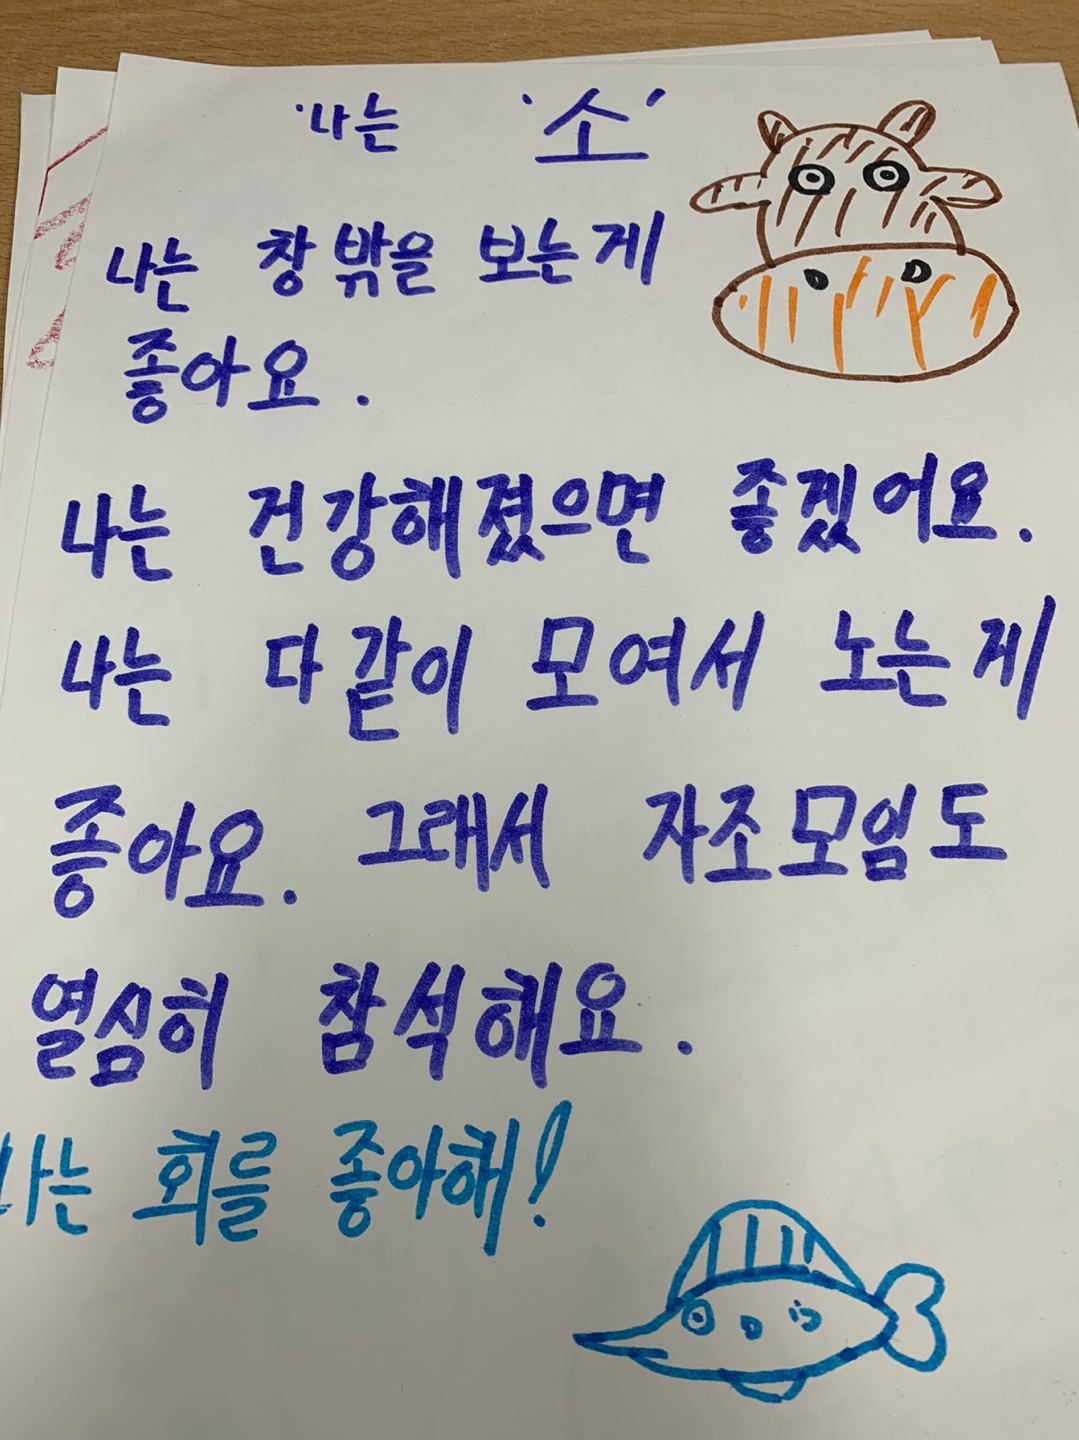 '나는 '소'
나는 창 밖을 보는게
좋아요.
나는 건강해졌으면 좋겠어요.
나는 다같이 모여서 노는게
좋아요. 그래서 자조모임도
열심히 참석해요.
나는 회를 좋아해!